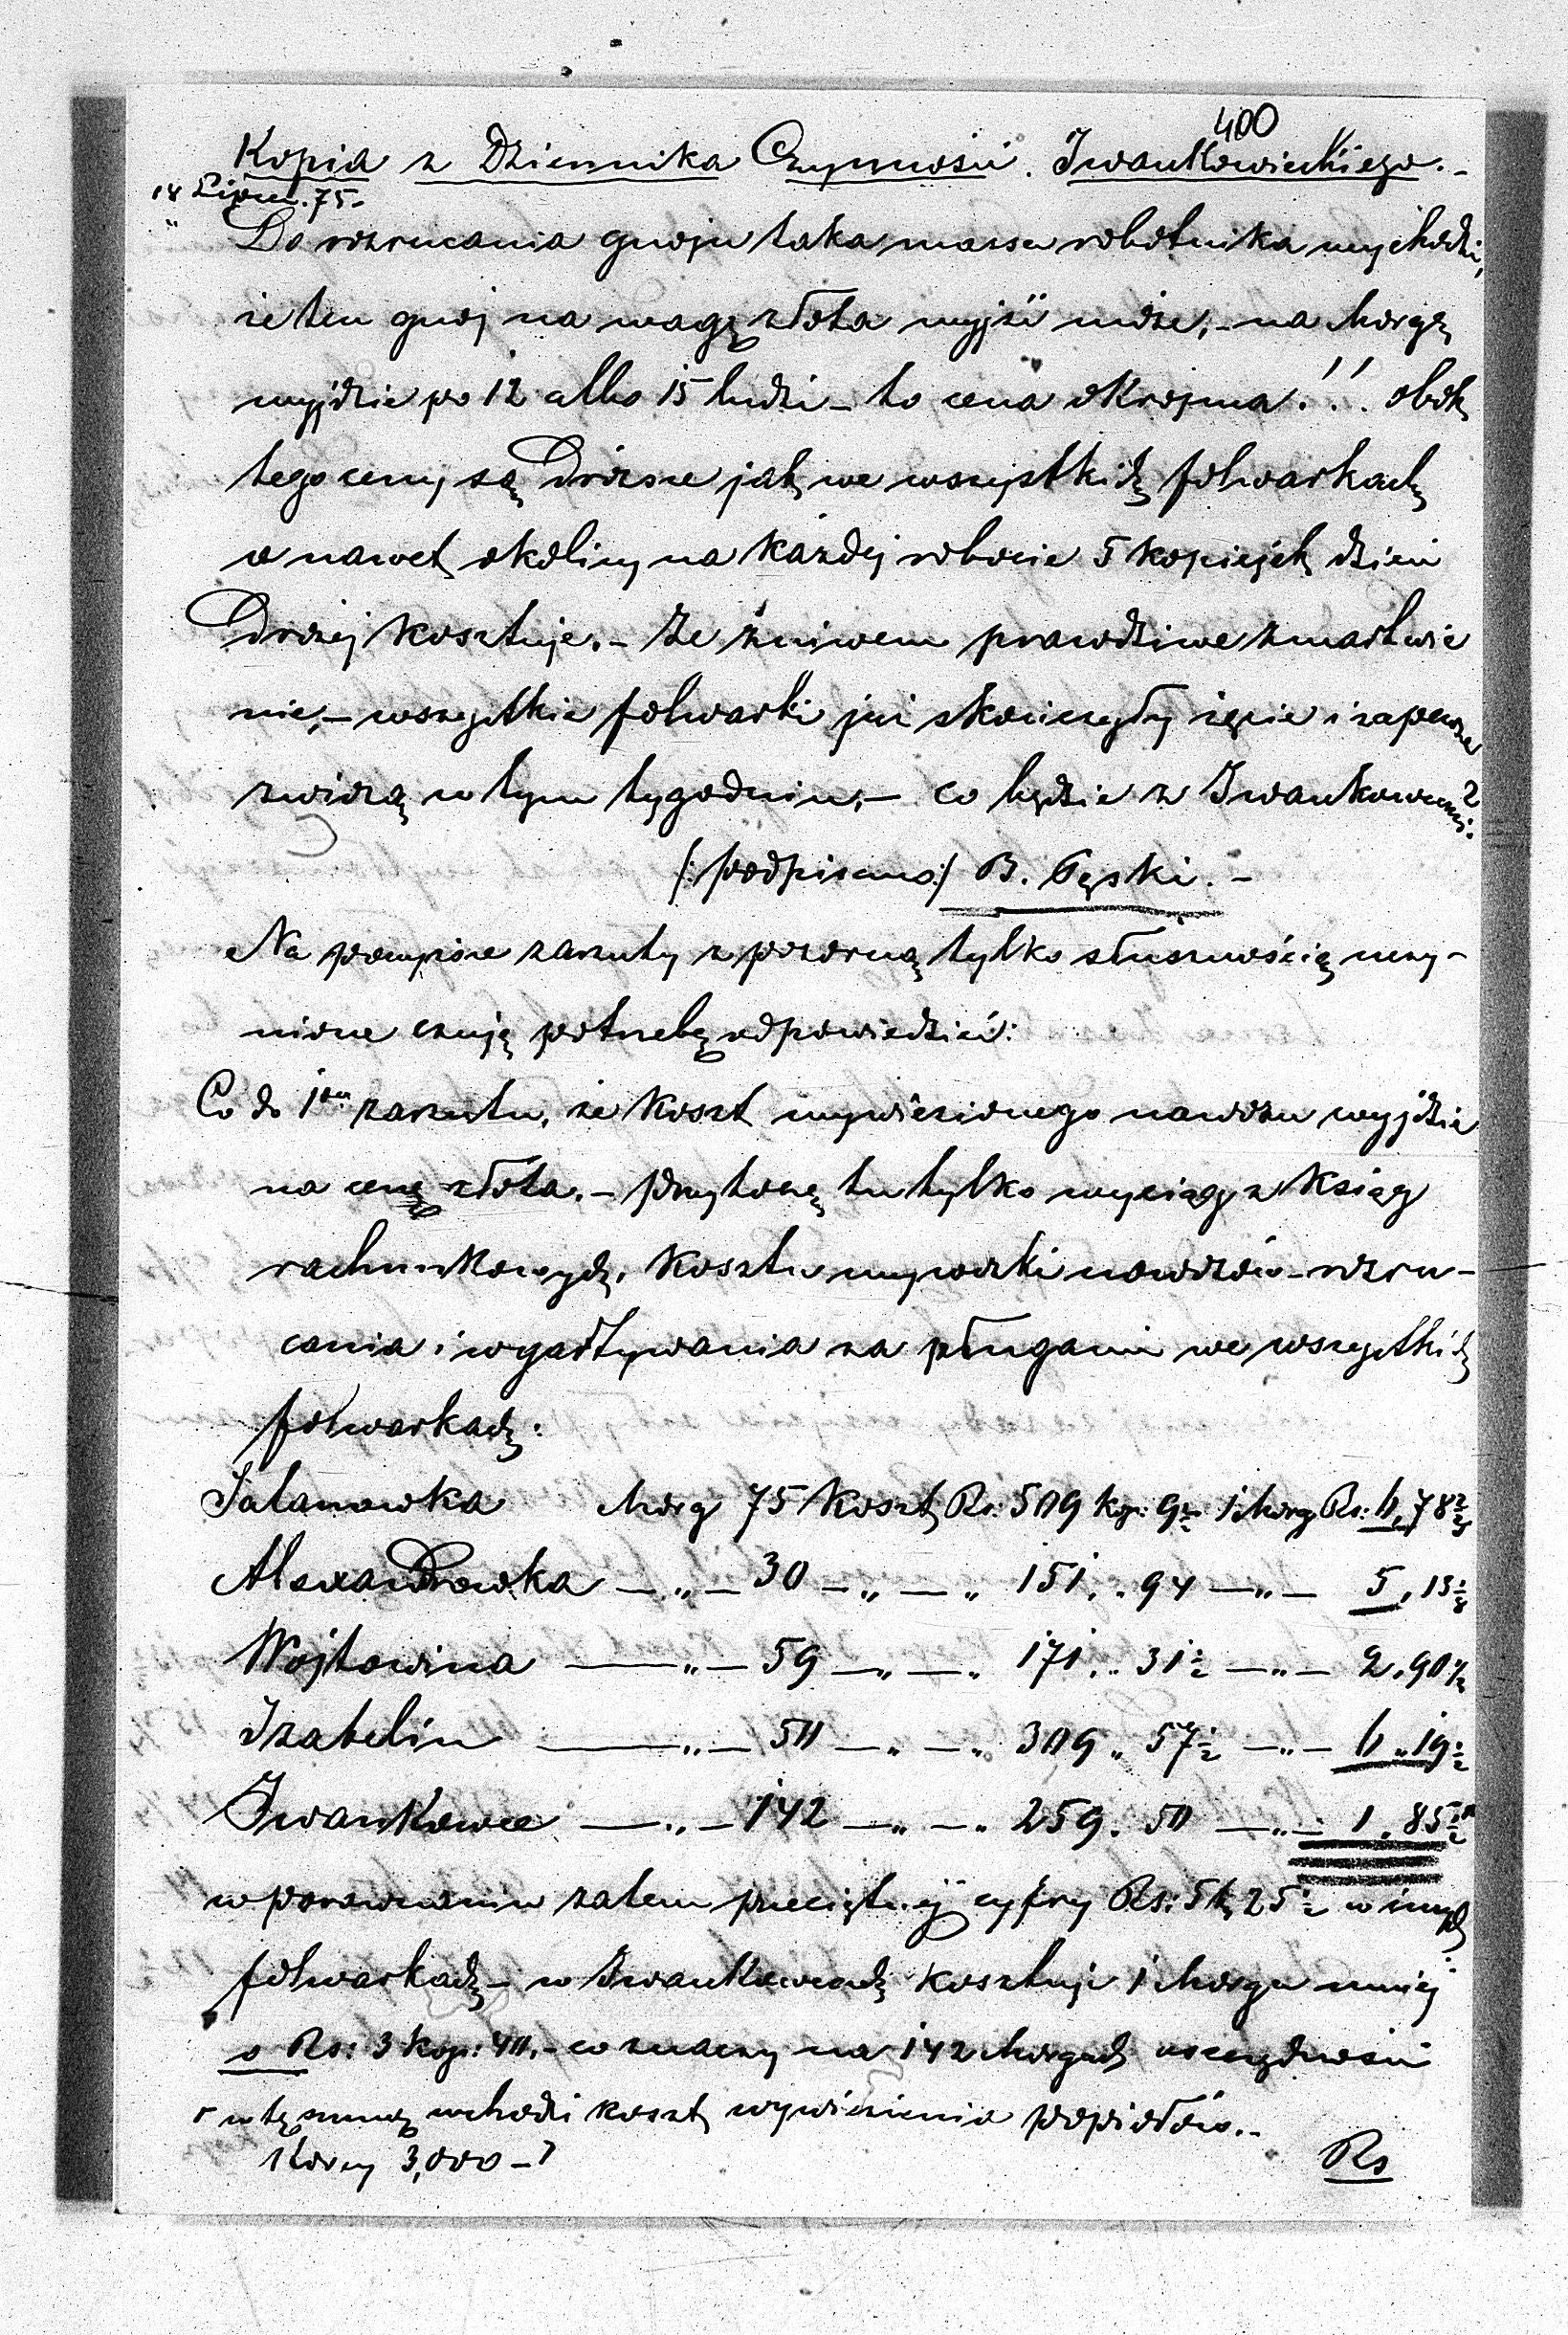 400
Kopia z Dziennika Czynności Iwankowieckiego.-
18 Lipca. 75.-
Do rozrucania gnoju taka massa robotnika wychodzi,
że ten gnoj na wagę złota wyjść może,- na morgę
wyjdzie po 12 albo 15 ludzi - to cena okropna!!! obok
tego ceny są droższe jak we wszystkich folwarkach
a nawet okolicy na każdej robocie 5 kopiejek dzień
drożej kosztuje.- Ze żniwem prawdziwe zmartwie
nie,- wszystkie folwarki już skończyły żęcie i zapewne
zwiozą w tym tygodniu,- co będzie z Iwankowcami?
/:podpisano:/ B. Gęski.-
Na powyższe zarzuty z pozorną tylko słusznością uczy-
nione czuję potrzebę odpowiedzieć:
Co do 1go zarzutu, że koszt wywiezionego nawozu wyjdzie
na cenę złota.- przytoczę tu tylko wyciąg z ksiąg
rachunkowych, kosztu wywózki nawozów - rozru-
cania i wygartywania za pługami we wszystkich
folwarkach:
Satanowka morg 75 koszt Rs: 509 kop: 9½ 1 morg Rs: 6, 78⅔
Alexandrowka —„— 30 —„—„ 151 „ 94 —„— 5, 13⅛
Wójtowina —„— 59 —„—„ 171 „ 31½ —„— 2, 90½
Izabelin —„— 50 —„—„ 309 „ 57½ —„— 6 „ 19½
Iwankowce —„— 142 —„—„ 259. 50 —„— 1, 85½
w porownaniu zatem przeciętnej cyfry Rs: 5 k, 25½ w innych
folwarkach - w Iwankowcach kosztuje 1 morga mniej
o Rs: 3 kop: 40.- co znaczy na 142 morgach oszczędności
w tę summę wchodzi koszt wywiezienia popiołów.-
Korcy 3,000 -
Rs